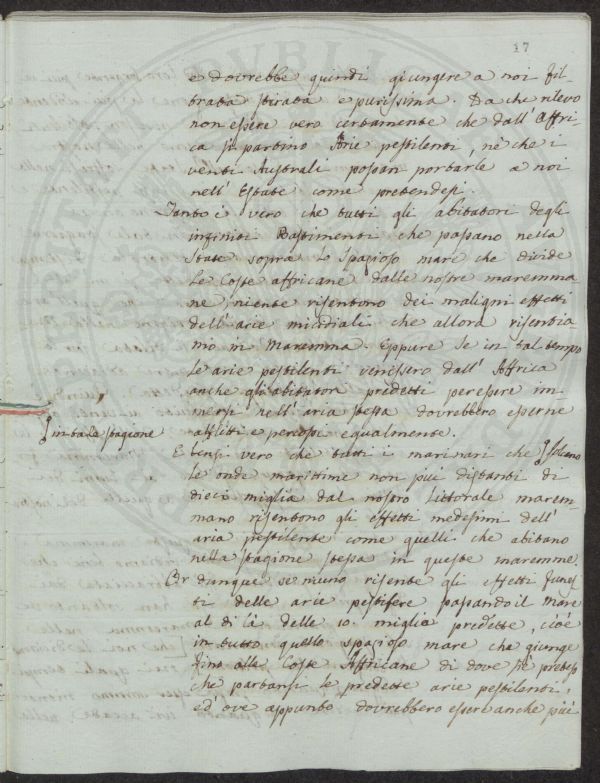 17
e dovrebbe quindi giungere a noi fil-
trata stirata e purissima. Da che rilevo
non essere vero certamente che dall' Affri-
ca si partino Arie pestilenti, nè che i
venti Australi possan portarle a noi
nell' Estate come pretendesi.
Tanto è vero che tutti gli abitatori degli
infiniti Bastimenti che passano nella
state sopra lo spazioso mare che divide
le Coste affricane dalle nostre maremma-
ne, niente risentono dei maligni effetti
dell' arie micidiali che allora risentia-
mo in Maremma. Eppure se in tal tempo
le arie pestilenti venissero dall' Affrica
anche gli abitatori predetti per essere im-
mersi nell' aria stessa dovrebbero esserne
afflitti e percossi egualmente.
in tale stagione
E bensì vero che tutti i marinari che solcano
le onde marittime non più distanti di
dieci miglia dal nostro littorale marem-
mano risentono gli effetti medesimi dell'
aria pestilente come quelli che abitano
nella stagione stessa in queste maremme.
Or dunque se niuno risente gli effetti funes-
ti delle arie pestifere passando il mare
al di là delle 10. miglia predette, cioè
in tutto quello spazioso mare che giunge
fino alle Coste Affricane di dove si pretese
che partansi le predette arie pestilenti,
ed' ove appunto dovrebbero essere anche più